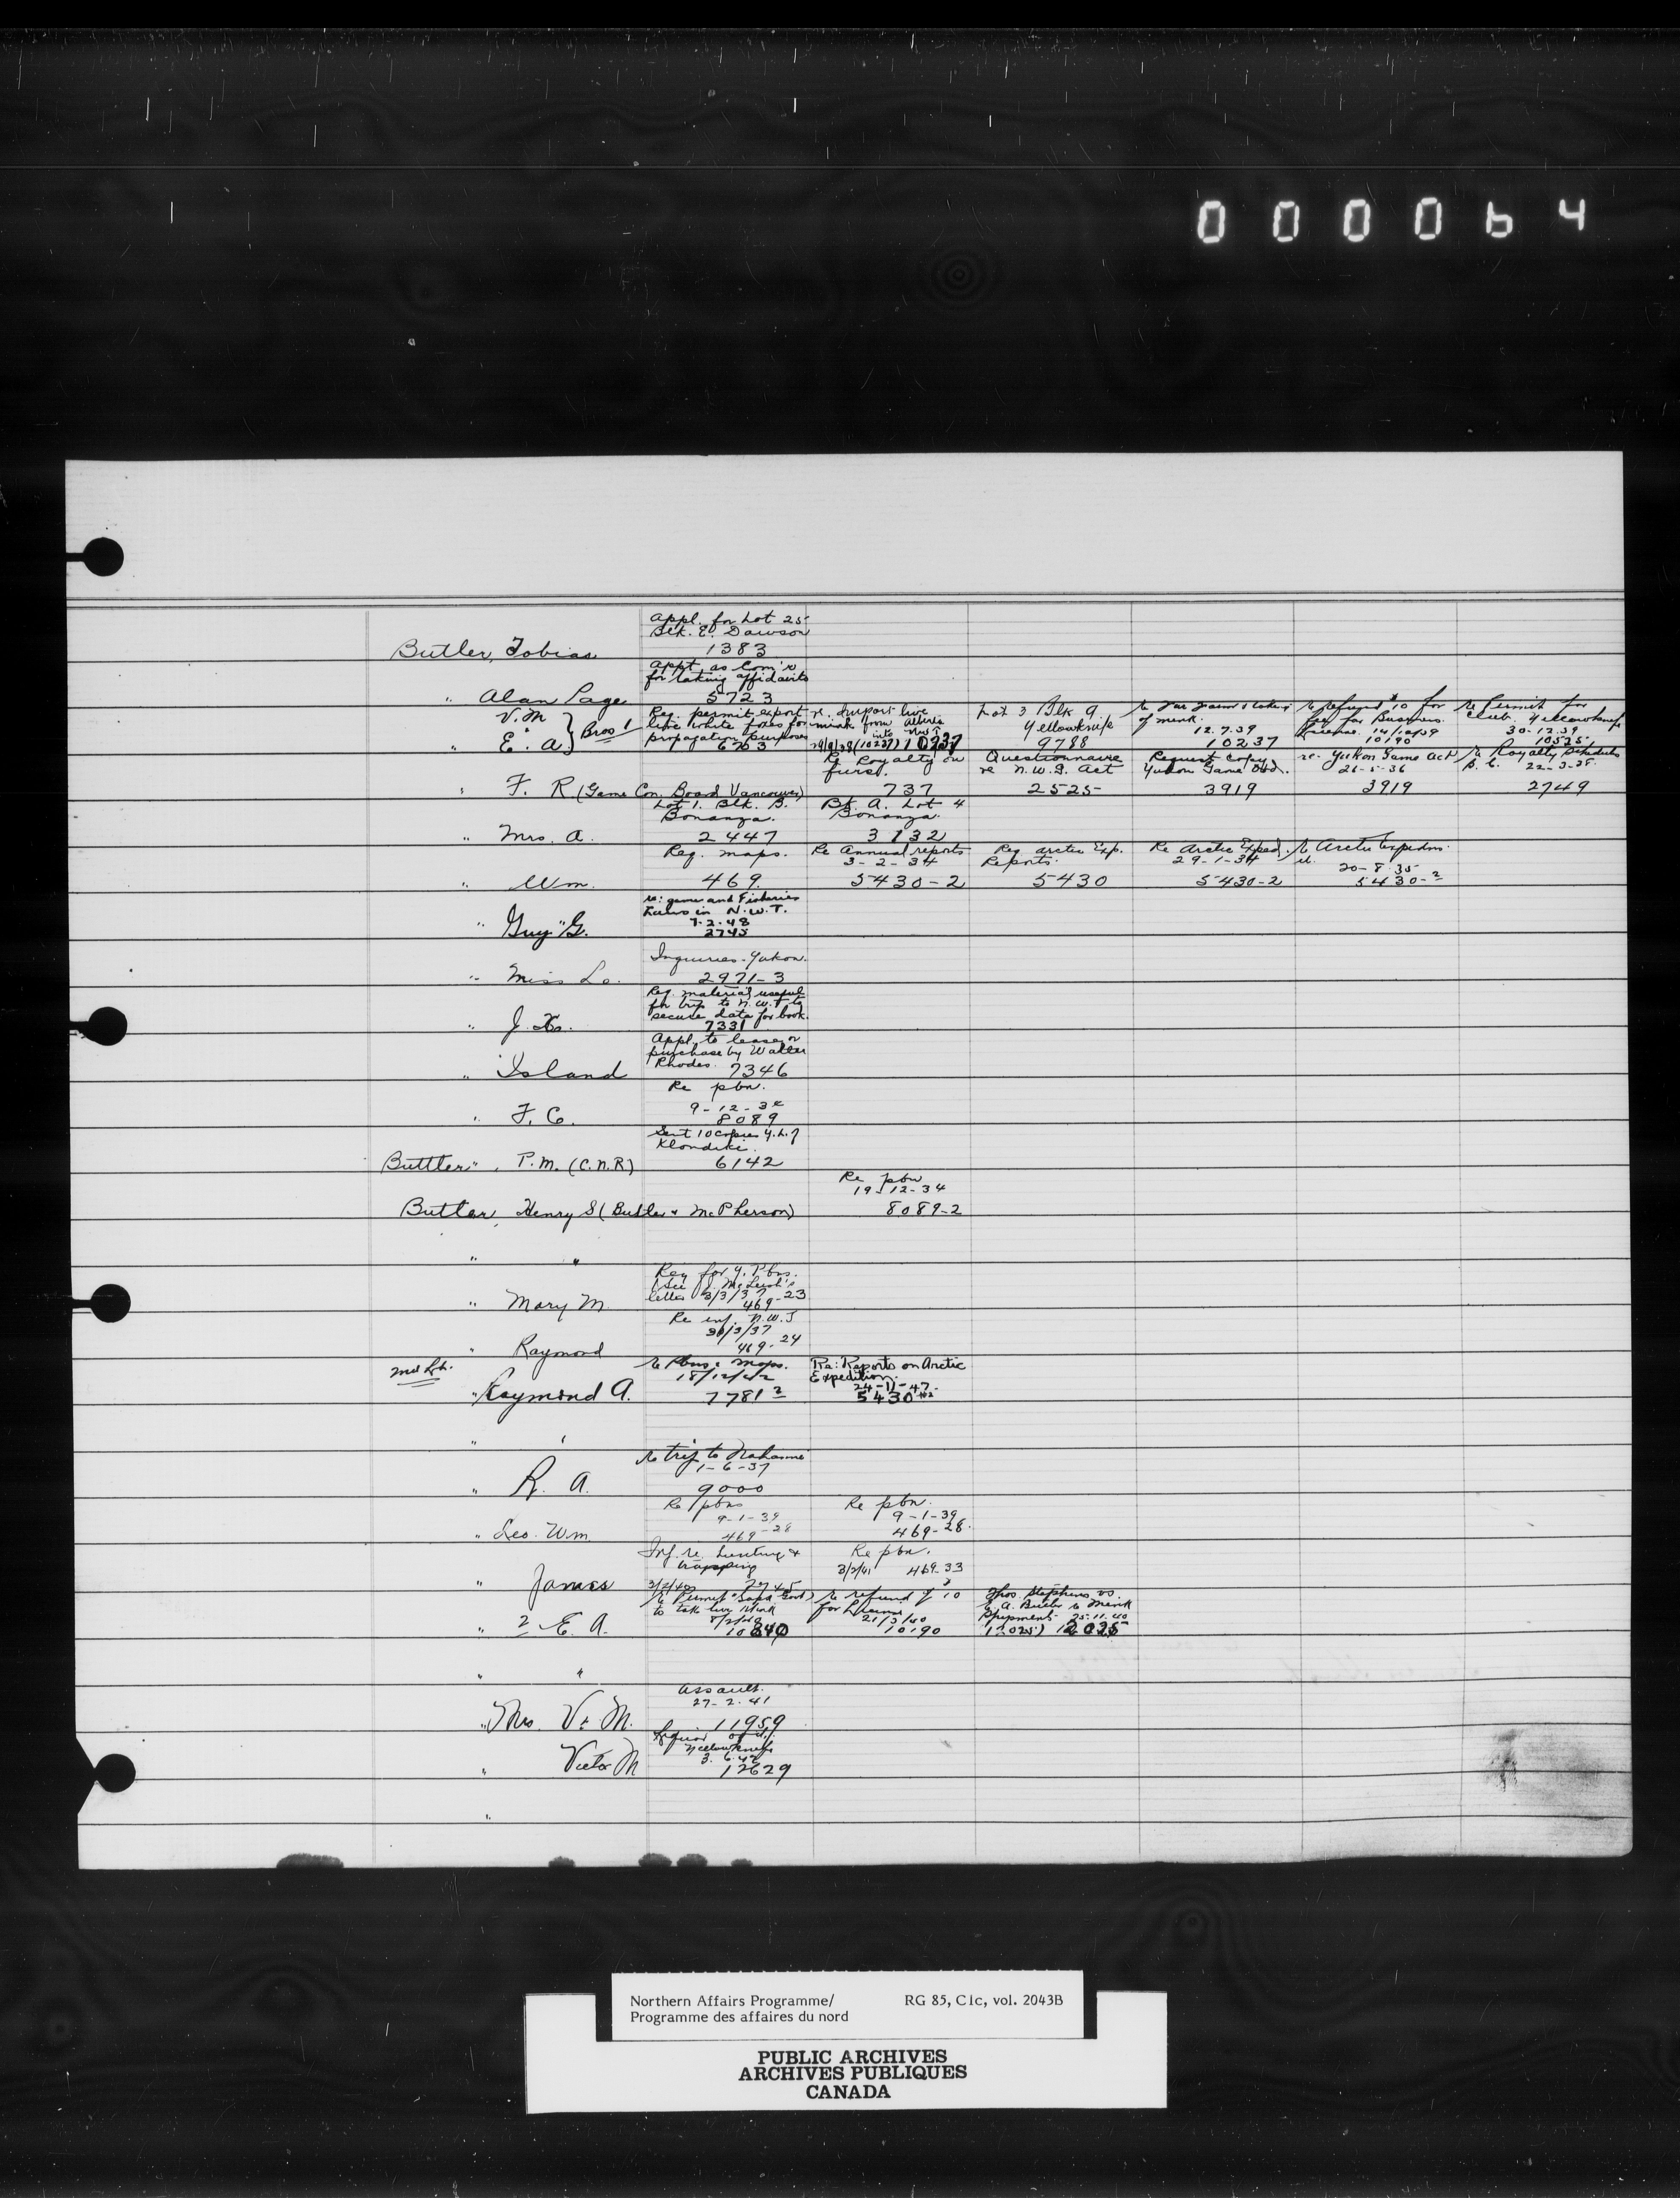 000064
Appl. for Lot 25
Blk. E. Dawson
Butler, Tobias 1383
Appt. as Com'r
for taking affidavits
" Alan Page 5723
V. M. } Bros!
" E. A.
Req. permit export
live white foxes for
propagation purposes
6703
re. import live
mink from Alberta
into N.W.T.
29/9/38 (10237) 10237
Lot 3 Blk 9
Yellowknife
9788
of mink.
12.7.39
10237
re refund $10 for
fee for Business
License. 14/10/39
10190
re Permit for
Club. Yellowknife
30-12-39
10525
" F. R. (Game Con. Board Vancouver)
Re Royalty on
furs.
737
Questionnaire
re N.W.G. Act
2525
Request Copy
Yukon Game Ord.
3919
re. Yukon Game Act
26-5-36
3919
re Royalty Schedules
B.C. 22-3-38
2749
Lot 1. Blk. B.
Bonanza.
" Mrs. A. 2447
Bk. A. Lot 4
Bonanza.
3132
Req. maps.
" Wm. 469
Re Annual reports
3-2-34
5430-2
Req. Arctic Exp.
Reports.
5430
Re Arctic Exped.
29-1-34
5430-2
re Arctic Expedns.
20-8-35
5430-2
re: game and Fisheries
Laws in N.W.T.
7-2-48
" Guy G. 2745
Inquiries - Yukon.
" Miss Lo. 2971-3
Req. material useful
for trip to N.W.T. to
secure data for book.
" J. 7331
Appl. to lease or
purchase by Walter
Rhodes. 7346
" Island
Re pbn.
9-12-32
" F. C. 8089
Sent 10 copies
Klondike.
Buttler, P.M. (C.N.R) 6142
Re pbn
19-12-34
Butler, Henry S (Butler & McPherson) 8089-2
" "
Req for Y. Pbns.
(See J. McLeish's
letter 3/3/37
" Mary M. 469-23
Re inf. N.W.T
30/3/37
" Raymond 469-24
re Pbns & maps.
18/12/42
" Raymond A. 7781-2
Re: Reports on Arctic
Expedition.
24-11-47
5430 #2
" "
re trip to
1-6-37
" R. A. 9000
Re pbns
9-1-39
" Geo. Wm. 469-28
Re pbn.
9-1-39
469-28
Inf. re hunting &
trapping
" James 3/2/40
Re pbn.
3/2/41 469-33
to take live Mink
8/2/40
" 2 E. A. 10840
re refund of $10
for License
21/3/40
10190
Thos. Stephens vs.
E. A. Butler re Mink
Shipments 25-11-40
(12025) 12035
" "
Assault.
27-2-41
" Mrs. V. M. 11959
Liquor
Yellowknife
3.6.42
" Victor M 12629
"
Northern Affairs Programme/ RG 85, C1c, vol. 2043B
Programme des affaires du nord
PUBLIC ARCHIVES
ARCHIVES PUBLIQUES
CANADA